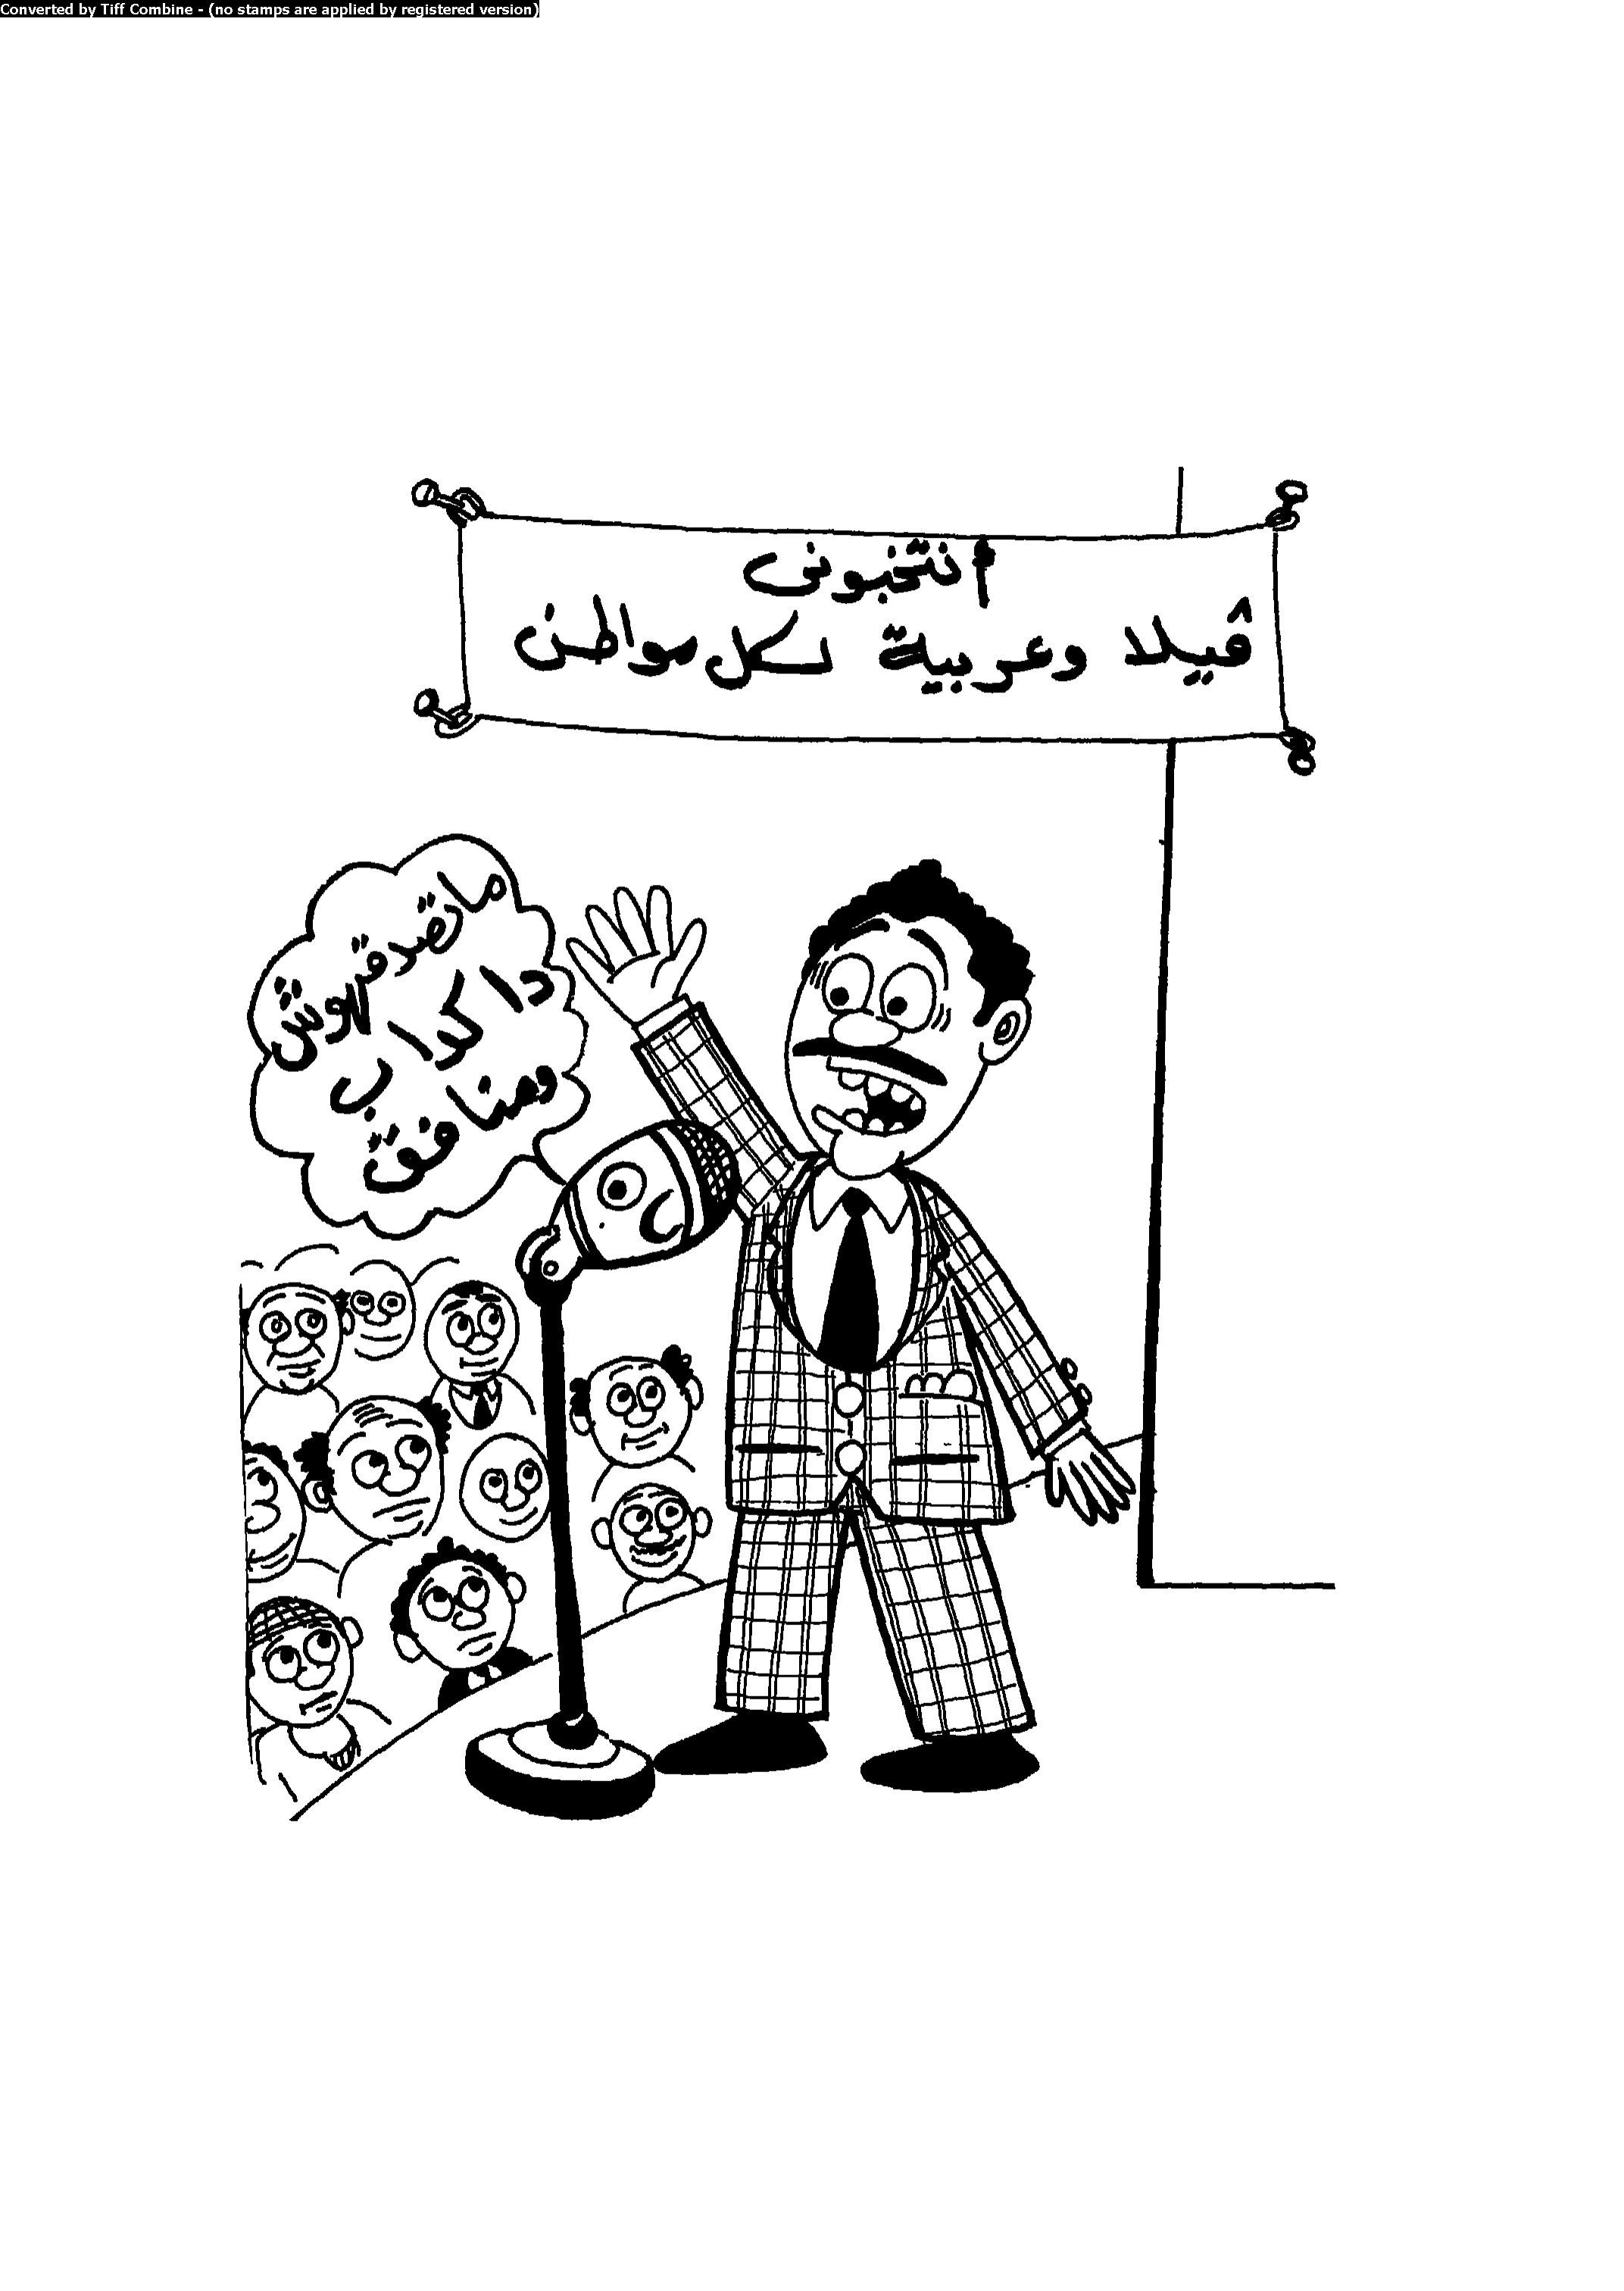 Converted by Tiff Combine - (no stamps are applied by registered version)
انتخبونى
ڤيلا وعربية لكل مواطن
ماتصدقهوش
دا كداب
ومنافق